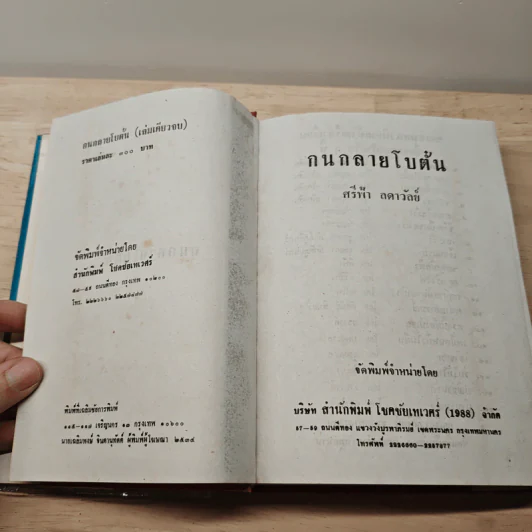 กนกลายโบตั๋น (เล่มเดียวจบ)
ราคาเล่มละ ๓๐๐ บาท
จัดพิมพ์จำหน่ายโดย
สำนักพิมพ์ โชคชัยเทเวศร์
๕๗-๕๙ ถนนตีทอง กรุงเทพ ๑๐๒๐๐
โทร.
พิมพ์ที่เฉลิมชัยการพิมพ์
เจริญนคร ๑๓ กรุงเทพ ๑๐๖๐๐
ผู้พิมพ์ผู้โฆษณา ๒๕๓๔
กนกลายโบตั๋น
ศรีฟ้า ลดาวัลย์
จัดพิมพ์จำหน่ายโดย
บริษัท สำนักพิมพ์ โชคชัยเทเวศร์ (1988) จำกัด
57-59 ถนนตีทอง แขวงวังบูรพาภิรมย์ เขตพระนคร กรุงเทพมหานคร
โทรศัพท์